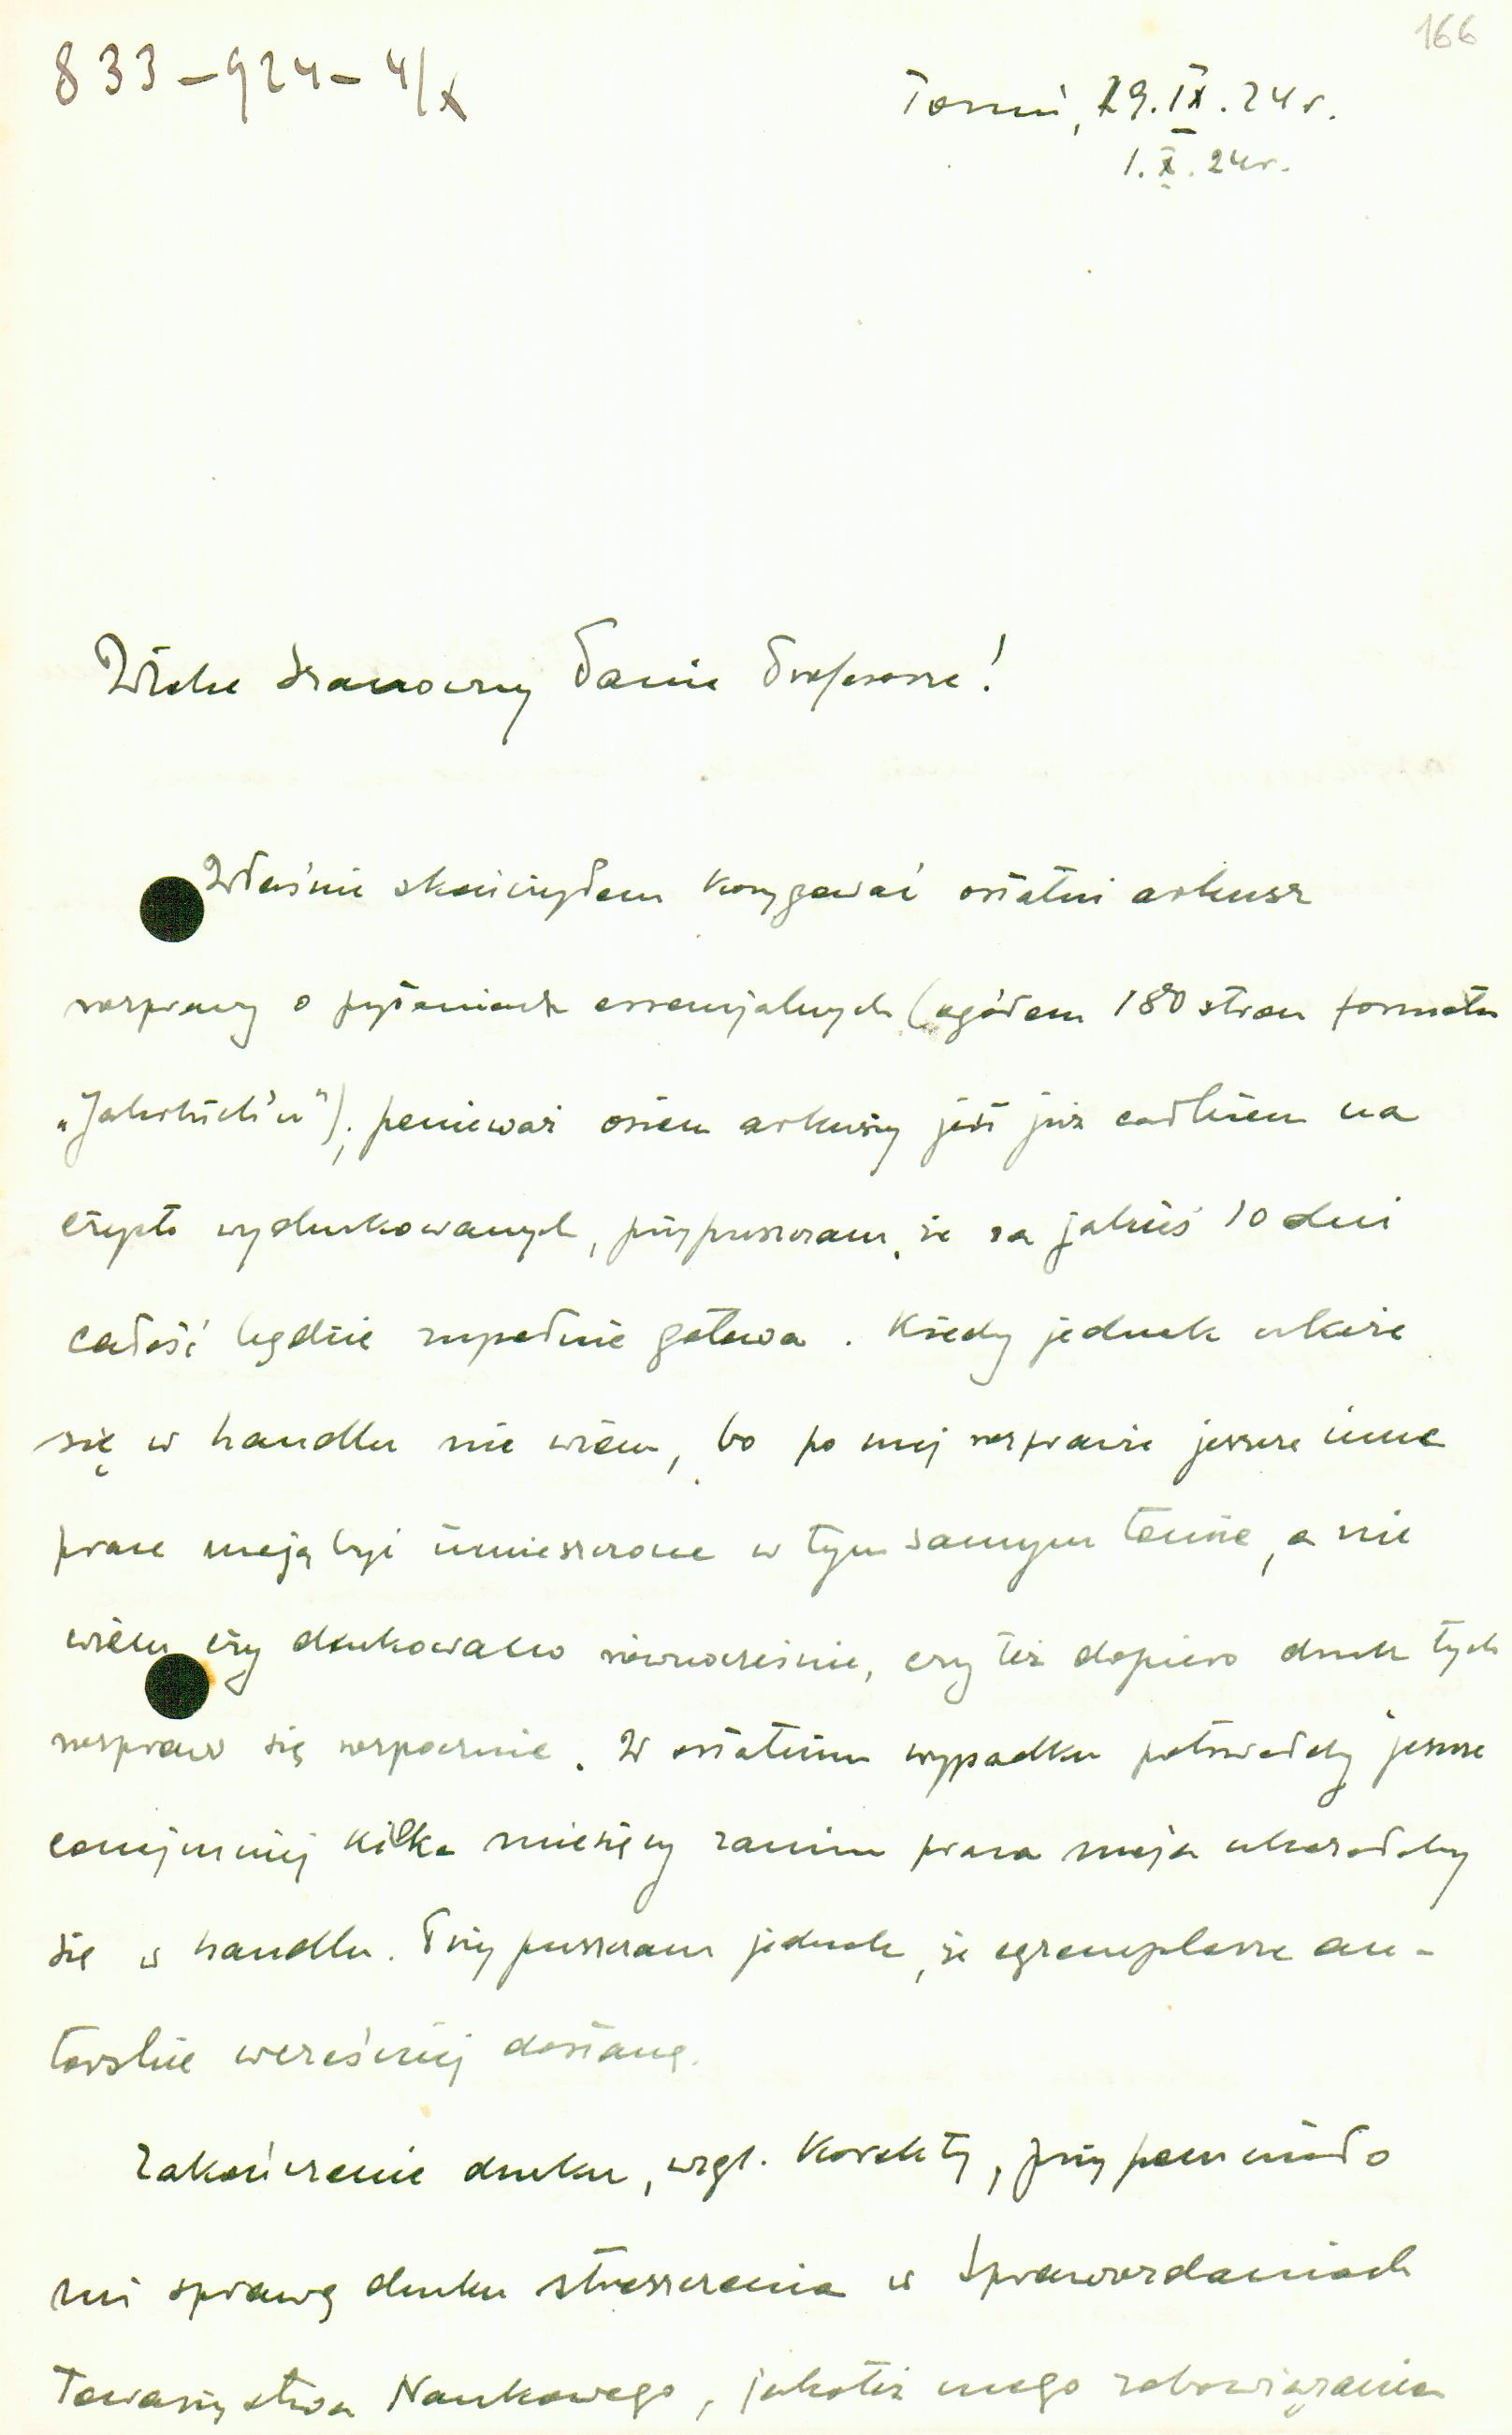 166
833-924-4/X
Toruń, 29.IX.24r.
1.X.24r.
Wielce Szanowny Panie Profesorze!
Właśnie skończyłem korygować ostatni arkusz
rozprawy o pytaniach essencjalnych (ogółem 180 stron formatu
„Jahrbuch'u"); ponieważ osiem arkuszy jest już całkiem na
czysto wydrukowanych, przypuszczam, że za jakieś 10 dni
całość będzie zupełnie gotowa. Kiedy jednak ukaże
się w handlu nie wiem, bo po mej rozprawie jeszcze inne
prace mają być umieszczone w tym samym tomie, a nie
wiem czy drukowano równocześnie, czy też dopiero druk tych
rozpraw się rozpocznie. W ostatnim wypadku potrwałoby jeszcze
conajmniej kilka miesięcy zanim praca moja ukazałaby
się w handlu. Przypuszczam jednak, że egzemplarze au-
torskie wcześniej dostanę.
Zakończenie druku, wzgl. korekty, przypomniało
mi sprawę druku streszczenia w Sprawozdaniach
Towarzystwa Naukowego, jakoteż mego zobowiązania